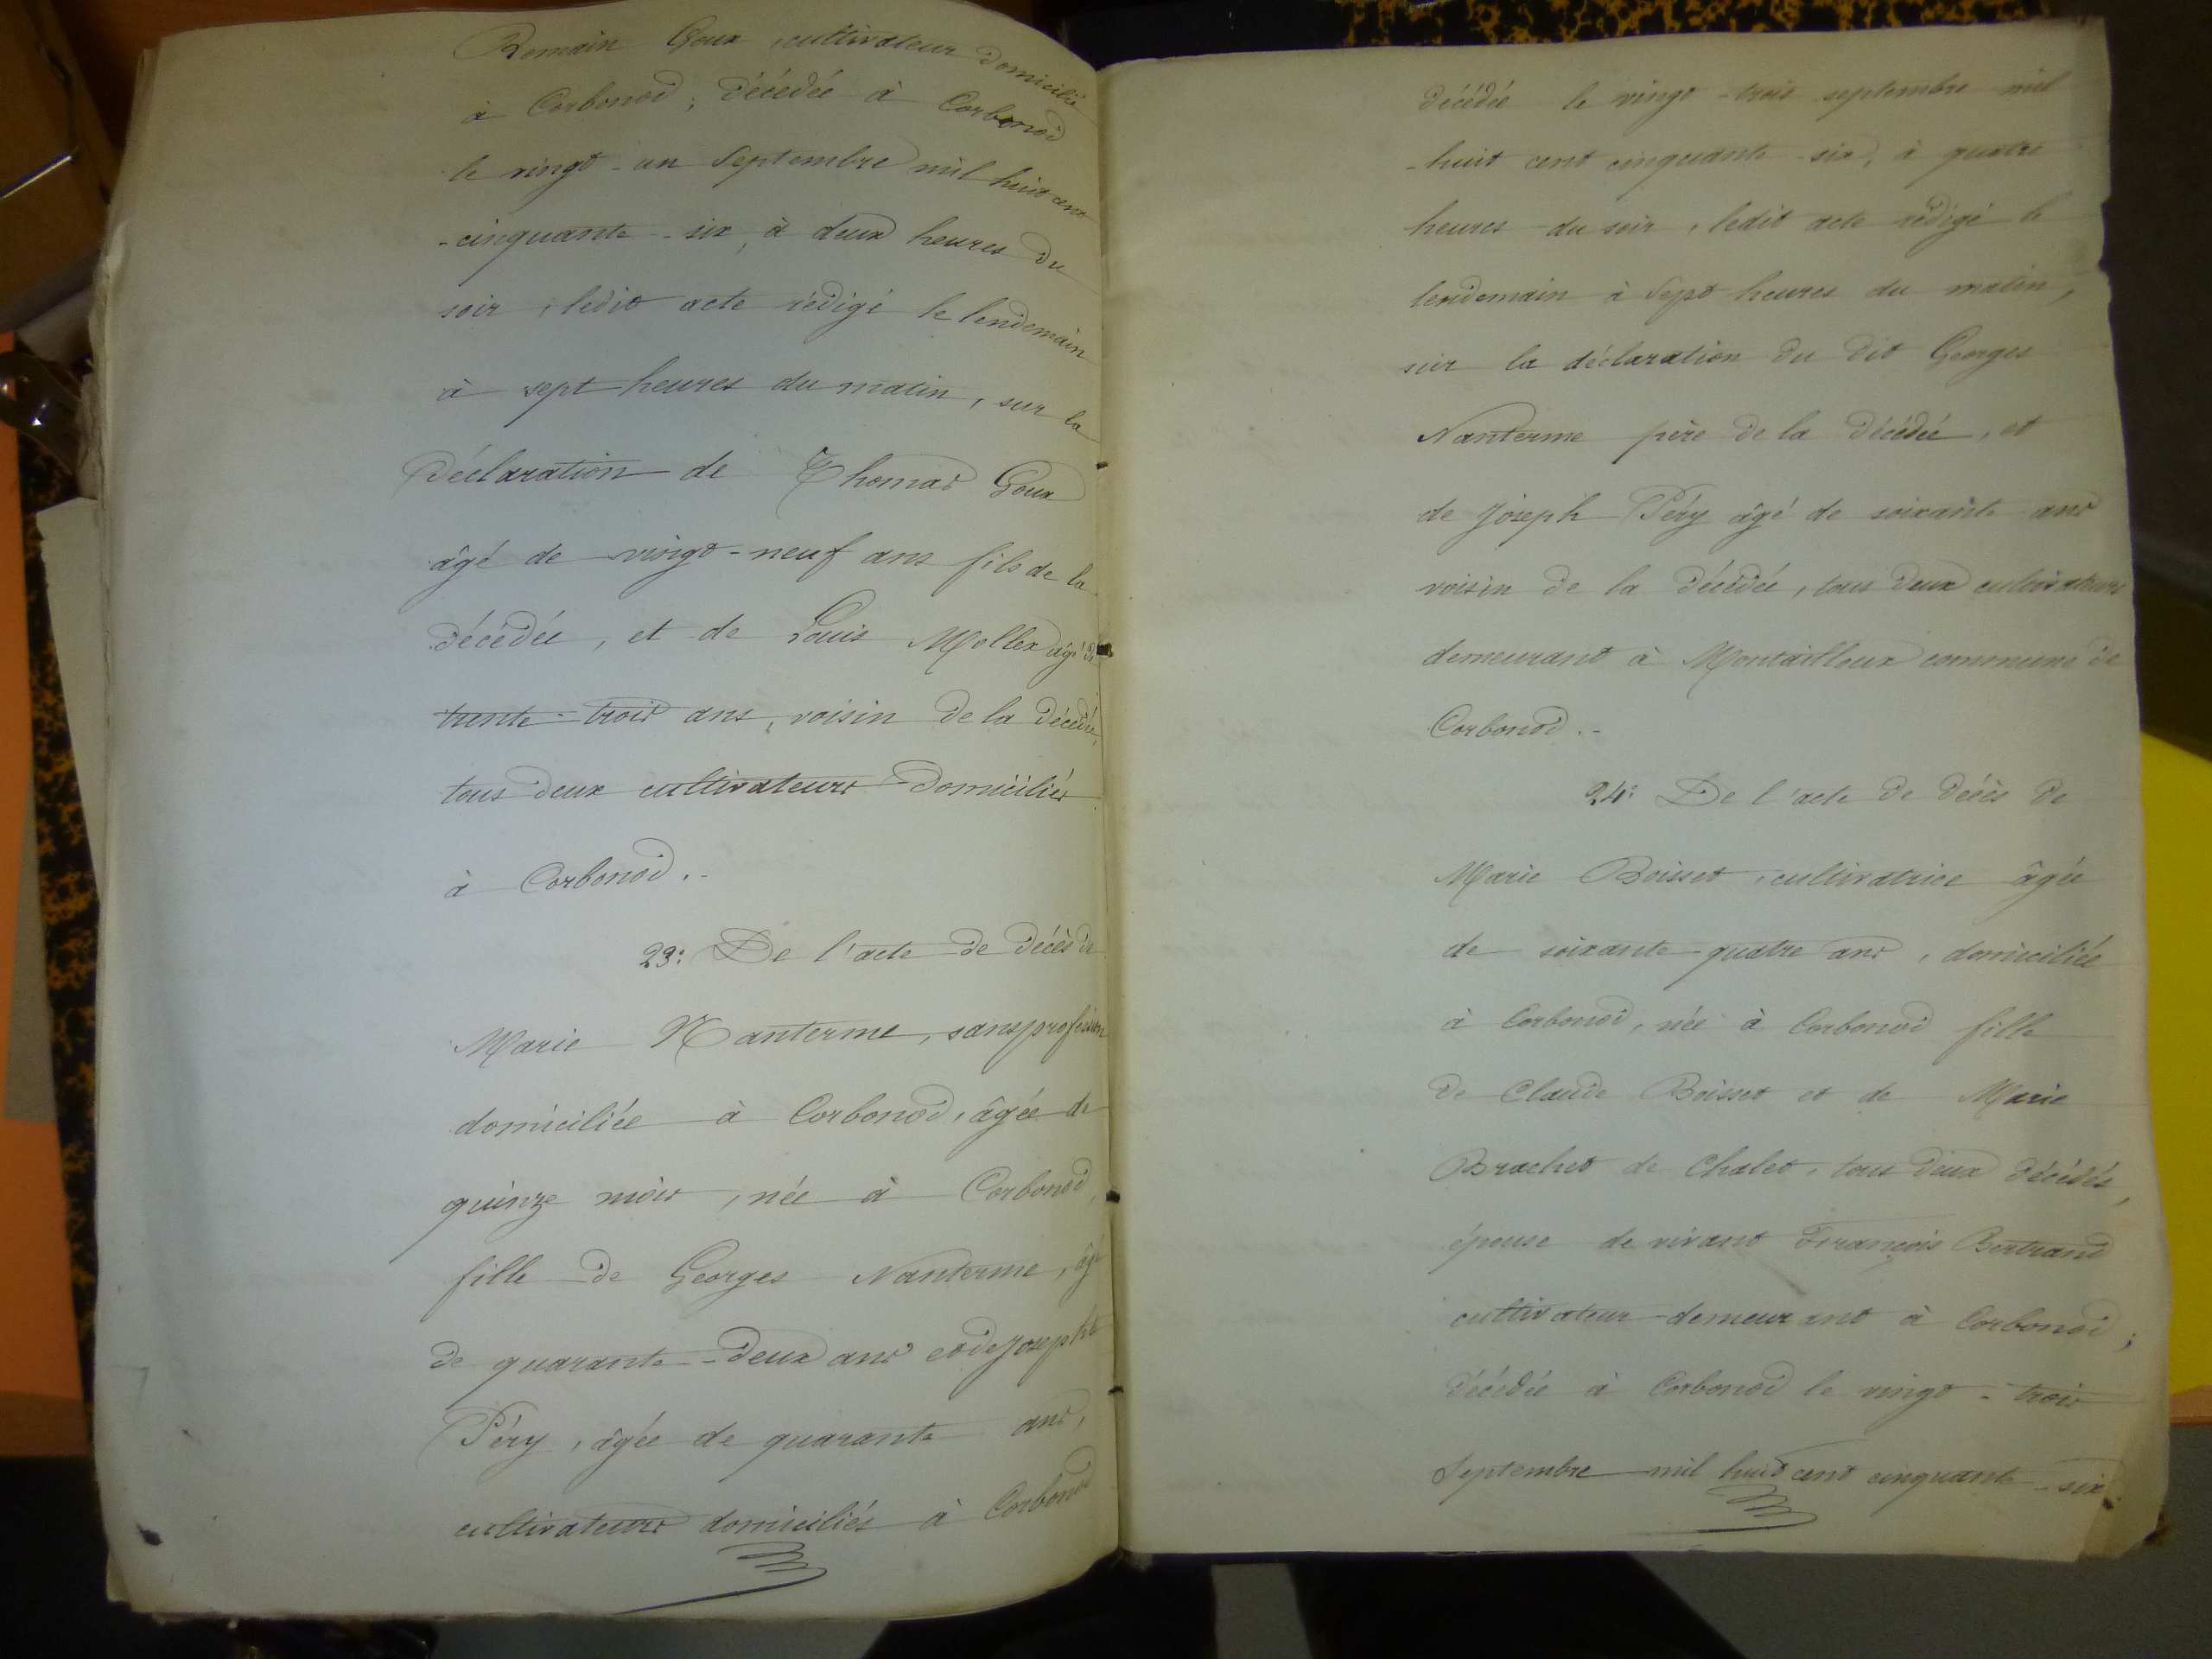 Romain Goux, cultivateur domicilié
à Corbonod; décédée à Corbonod
le vingt-un Septembre mil huit cent
-cinquante-six, à deux heures du
soir, ledit acte rédigé le lendemain
à sept heures du matin, sur la
déclaration de Thomas Goux
âgé de vingt-neuf ans fils de la
décédée, et de Louis Mollex âgé de
trente-trois ans, voisin de la décédée,
tous deux cultivateurs domiciliés
à Corbonod.-
23: De l'acte de décès de
Marie Nanterme, sans profession
domiciliée à Corbonod, âgée de
quinze mois, née à Corbonod,
fille de Georges Nanterme, âgé
de quarante-deux ans et de Josephte
Péry, âgée de quarante ans,
cultivateurs domiciliés à Corbonod
décédée le vingt-trois septembre mil
-huit cent cinquante-six, à quatre
heures du soir, ledit acte rédigé le
lendemain à Sept heures du matin,
sur la déclaration du dit Georges
Nanterme père de la décédée, et
de Joseph Péry âgé de soixante ans
voisin de la décédée, tous deux cultivateurs
demeurant à Montailloux commune de
Corbonod.-
24: De l'acte de décès de
Marie Boisset, cultivatrice âgée
de soixante-quatre ans, domiciliée
à Corbonod, née à Corbonod fille
de Claude Boisset et de Marie
Brachet de Chalet, tous deux décédés,
épouse de vivant François Bertrand
cultivateur demeurant à Corbonod;
décédée à Corbonod le vingt-trois
Septembre mil huit cent cinquante-six